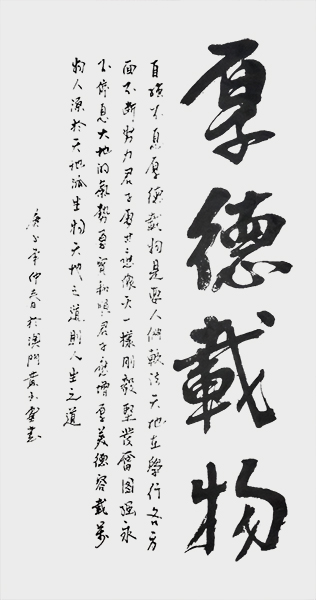 厚德載物
自強不息厚德載物是要人們效法天地在學行各方
面不斷努力君子處世應像天一樣剛毅堅發奮圖强永
不停息大地的氣勢厚實和順君子應增厚美德容載萬
物人源於天地派生物天地之道則人生之道
庚子年仲春日於澳門